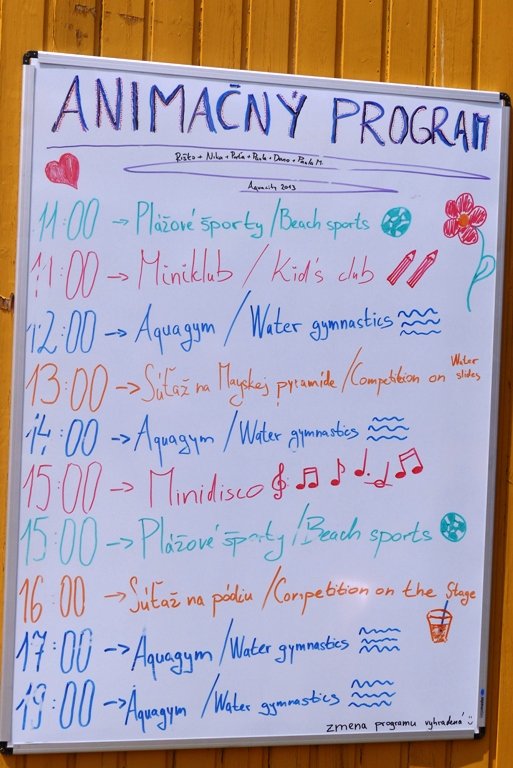 ANIMAČNÝ PROGRAM
Riško + Nika + Peťa + Paula + Dano + Paula M.
Aquacity 2013
11:00 → Plážové športy / Beach sports
11:00 → Miniklub / Kid's club
12:00 → Aquagym / Water gymnastics
13:00 → Súťaž na Mayskej pyramíde / Competition on Water slides
14:00 → Aquagym / Water gymnastics
15:00 → Minidisco
15:00 → Plážové športy / Beach sports
16:00 → Súťaž na pódiu / Competition on the Stage
17:00 → Aquagym / Water gymnastics
19:00 → Aquagym / Water gymnastics
zmena programu vyhradená :)